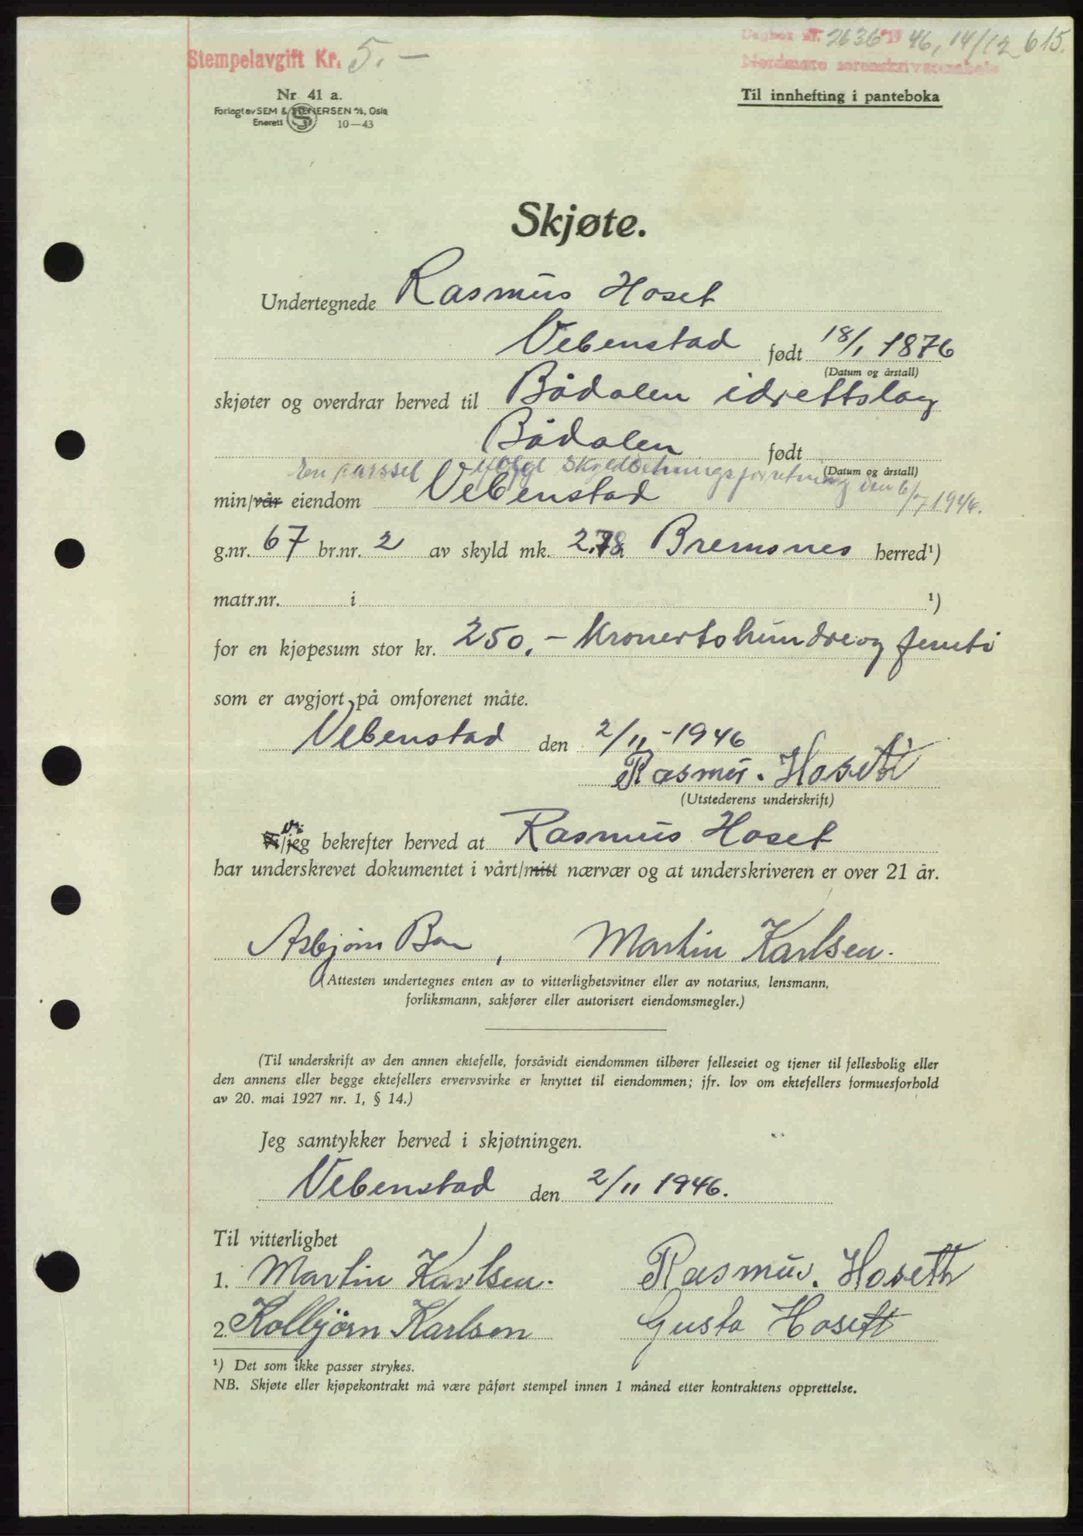 Stempelavgift Kr. 5.–
Dagbok nr. 2636 19 46, 14/12 615.
Nordmøre sorenskriverembete
Nr 41 a.
Forlagt av SEM & STENERSEN A/S, Oslo
Enerett 10—43
Til innhefting i panteboka
Skjøte.
Undertegnede Rasmus Hoset
Vebenstad født 18/1 1876
(Datum og årstall)
skjøter og overdrar herved til Bådalen idrettslag
Bådalen født
(Datum og årstall)
En parssel ifølge Skyldelingsforretning den 6/7 1946.
min/vår eiendom Vebenstad
g.nr. 67 br.nr. 2 av skyld mk. 2.78 Bremsnes herred¹)
matr.nr. i ¹)
for en kjøpesum stor kr. 250.- Kronertohundreog femti
som er avgjort på omforenet måte.
Vebenstad den 2/11-1946
Rasmus. Hoseth
(Utstederens underskrift)
Vi/jeg vi bekrefter herved at Rasmus Hoset
har underskrevet dokumentet i vårt/mitt nærvær og at underskriveren er over 21 år.
Asbjørn Bae, Martin Karlsen.
(Attesten undertegnes enten av to vitterlighetsvitner eller av notarius, lensmann,
forliksmann, sakfører eller autorisert eiendomsmegler.)
(Til underskrift av den annen ektefelle, forsåvidt eiendommen tilhører felleseiet og tjener til fellesbolig eller
den annens eller begge ektefellers ervervsvirke er knyttet til eiendommen; jfr. lov om ektefellers formuesforhold
av 20. mai 1927 nr. 1, § 14.)
Jeg samtykker herved i skjøtningen.
Vebenstad den 2/11 1946.
Til vitterlighet
1. Martin Karlsen. Rasmus. Hoseth
2. Kolbjørn Karlsen Gusta Hoseth
¹) Det som ikke passer strykes.
NB. Skjøte eller kjøpekontrakt må være påført stempel innen 1 måned etter kontraktens opprettelse.